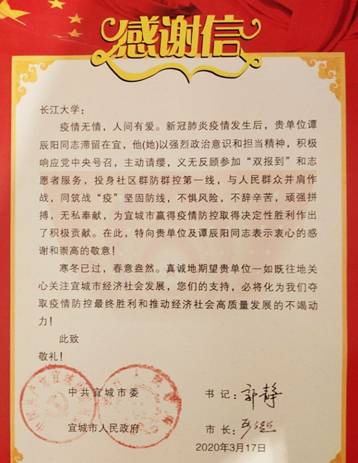 感谢信
长江大学：
疫情无情，人间有爱。新冠肺炎疫情发生后，贵单位谭
辰阳同志滞留在宜，他(她)以强烈政治意识和担当精神，积极
响应党中央号召，主动请缨，义无反顾参加“双报到”和志
愿者服务，投身社区群防群控第一线，与人民群众并肩作
战，同筑战“疫”坚固防线，不惧风险，不辞辛苦，顽强拼
搏，无私奉献，为宜城市赢得疫情防控取得决定性胜利作出
了积极贡献。在此，特向贵单位及谭辰阳同志表示衷心的感
谢和崇高的敬意！
寒冬已过，春意盎然。真诚地期望贵单位一如既往地关
心关注宜城市经济社会发展，您们的支持，必将化为我们夺
取疫情防控最终胜利和推动经济社会高质量发展的不竭动
力！
此致
敬礼！
中共宜城市委 书记：郭静
宜城市人民政府 市长：
2020年3月17日